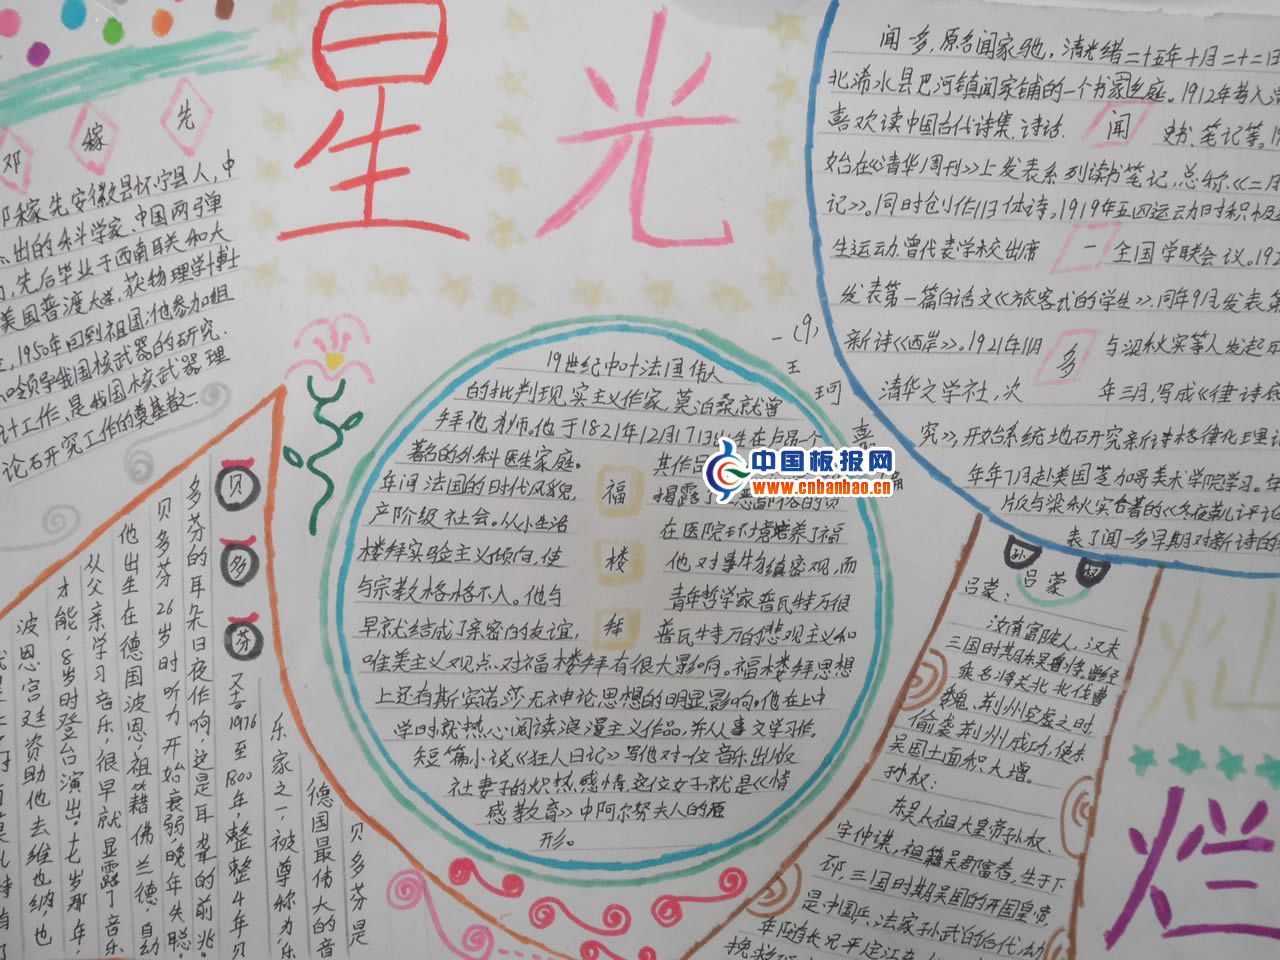 星光
灿
烂
邓稼先
邓稼先安徽县怀宁县人,中
出的科学家、中国两弹
,先后毕业于西南联大和
美国普渡大学,获物理学博士
,1950年回到祖国;他参加组
领导我国核武器的研究.
计工作、是我国核武器理
论石开究工作的奠基者之一
贝多芬
贝多芬是
德国最伟大的音
乐家之一,被尊称为乐
多芬的耳朵日夜作响,这是耳聋的前兆。
贝多芬26岁时听力开始衰弱,晚年失聪,
他出生在德国波恩,祖籍佛兰德,自幼
从父亲学习音乐,很早就显露了音乐
才能,8岁时登台演出,十七岁那年,
波恩宫廷资助他去维也纳,也
一(9)
王
珂
福楼拜
19世纪中叶法国伟大
的批判现实主义作家,莫泊桑就曾
拜他为师。他于1821年12月17日出生在卢昂一个
著名的外科医生家庭。
年间法国的时代风貌,
产阶级社会。从小生活
在医院环境培养了福
楼拜实验主义倾向,使
他对事物缜密观,而
与宗教格格不入。他与
青年哲学家普瓦特万很
早就结成了亲密的友谊,
普瓦特万的悲观主义和
唯美主义观点对福楼拜有很大影响。福楼拜思想
上还有斯宾诺莎无神论思想的明显影响。他在上中
学时就热心阅读浪漫主义作品,并从事文学习作。
短篇小说《狂人日记》写他对一位音乐出版
社妻子的炽热感情,这位女子就是《情
感教育》中阿尔努夫人的原
形。
中国板报网
www.cnbanbao.cn
闻一多
闻一多,原名闻家骅,清光绪二十五年十月二十二日
北浠水县巴河镇闻家铺的一个书家庭。1912年考入清
喜欢读中国古代诗集、诗话、史书、笔记等。
始在《清华周刊》上发表系列读书笔记,总称《二月
记》。同时创作旧体诗。1919年五四运动时积极
生运动,曾代表学校出席全国学联会议。
发表第一篇白话文《旅客式的学生》,同年9月发表第
新诗《西岸》。1921年11月与梁秋实等人发起
清华文学社,次年三月,写成《律诗
究》,开始系统地石开究新诗格律化理论
年年7月赴美国芝加哥美术学院学习。
版与梁秋实合著的《冬夜草儿评论
表了闻一多早期对新诗的
吕蒙
吕蒙:
汝南富陂人,汉末
乘名将关北北伐曹
魏、荆州空虚之时
偷袭荆州成功,使东
吴国土面积大增。
孙权:
东吴太祖大皇帝孙权,
字仲谋,祖籍吴郡富春,生于下
邳,三国时期吴国的开国皇帝
是中国兵法家孙武的后代,幼
年随长兄平定江东